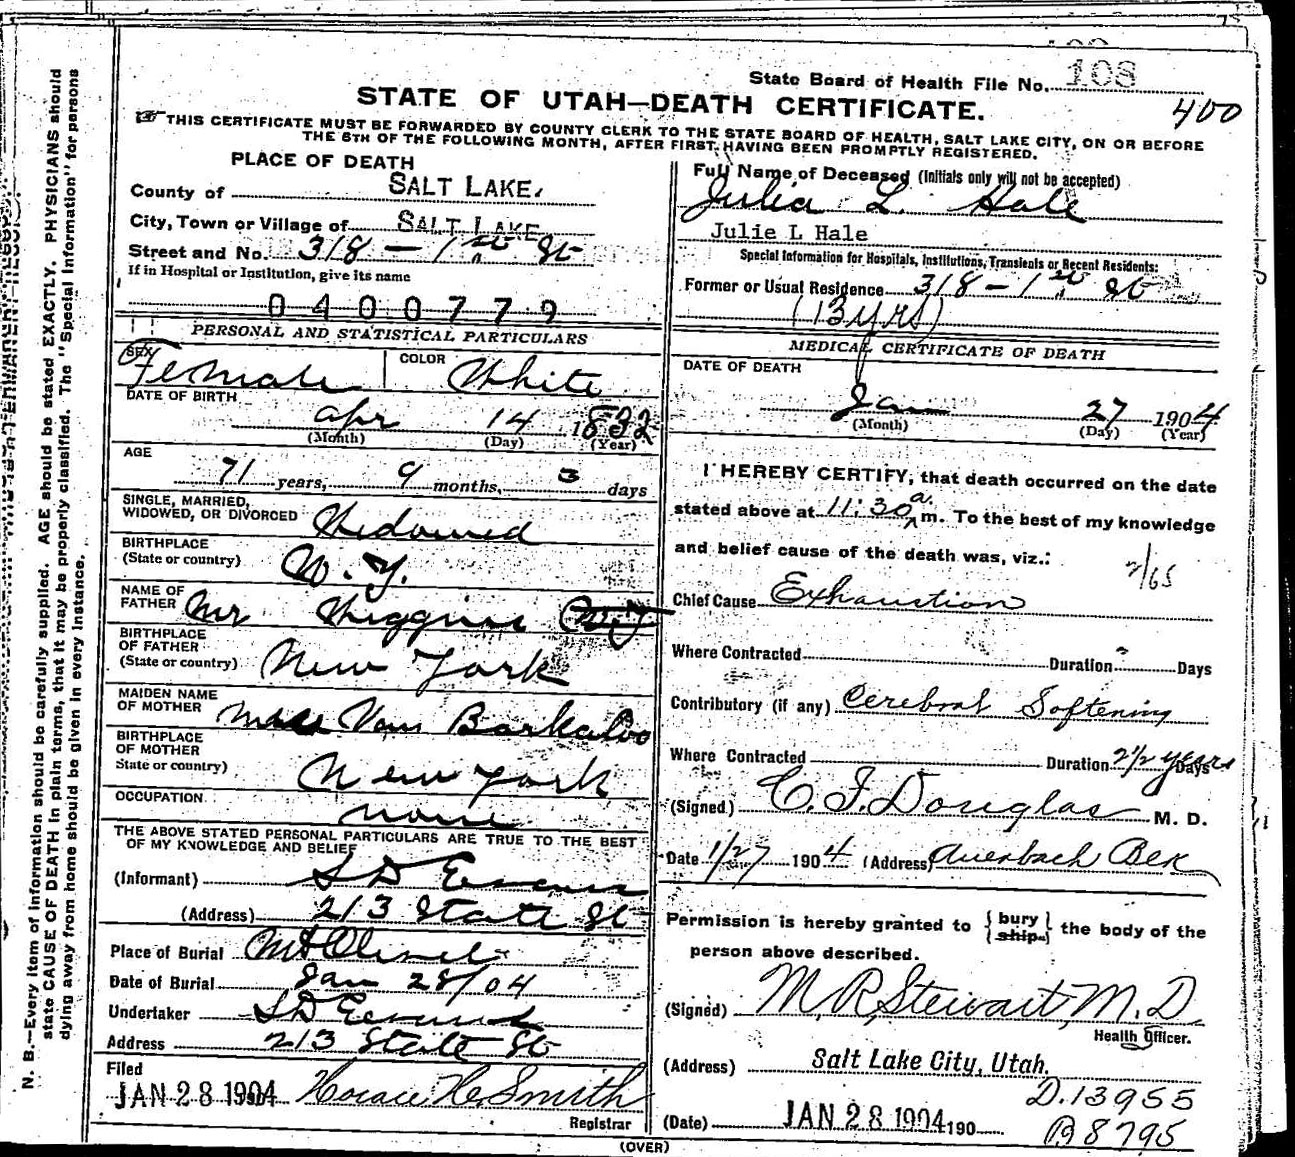 State Board of Health File No. 108
400
STATE OF UTAH—DEATH CERTIFICATE.
THIS CERTIFICATE MUST BE FORWARDED BY COUNTY CLERK TO THE STATE BOARD OF HEALTH, SALT LAKE CITY, ON OR BEFORE
THE 5TH OF THE FOLLOWING MONTH, AFTER FIRST HAVING BEEN PROMPTLY REGISTERED.
N. B.—Every item of information should be carefully supplied. AGE should be stated EXACTLY. PHYSICIANS should
state CAUSE OF DEATH in plain terms, that it may be properly classified. The "Special Information" for persons
dying away from home should be given in every instance.
PLACE OF DEATH
County of SALT LAKE.
City, Town or Village of SALT LAKE
Street and No. 318 — 1st St
If in Hospital or Institution, give its name
0400779
PERSONAL AND STATISTICAL PARTICULARS
SEX Female COLOR White
DATE OF BIRTH
Apr 14 1832
(Month) (Day) (Year)
AGE
71 years, 9 months, 3 days
SINGLE, MARRIED,
WIDOWED, OR DIVORCED Widowed
BIRTHPLACE
(State or country) N. Y.
NAME OF
FATHER Mr Higgins
BIRTHPLACE
OF FATHER
(State or country) New York
MAIDEN NAME
OF MOTHER Miss Van Barkaloo
BIRTHPLACE
OF MOTHER
State or country) New York
OCCUPATION none
THE ABOVE STATED PERSONAL PARTICULARS ARE TRUE TO THE BEST
OF MY KNOWLEDGE AND BELIEF
(Informant) S D Evans
(Address) 213 State St
Place of Burial Mt Olivet
Date of Burial Jan 28/04
Undertaker S D Evans
Address 213 State St
Filed
JAN 28 1904 Horace H. Smith
Registrar
Full Name of Deceased (Initials only will not be accepted)
Julia L. Hale
Julie L Hale
Special Information for Hospitals, Institutions, Transients or Recent Residents:
Former or Usual Residence 318 – 1st St
(13 yrs)
MEDICAL CERTIFICATE OF DEATH
DATE OF DEATH
Jan 27 1904
(Month) (Day) (Year)
I HEREBY CERTIFY, that death occurred on the date
stated above at 11:30 a. m. To the best of my knowledge
and belief cause of the death was, viz.:
Chief Cause Exhaustion
Where Contracted Duration Days
Contributory (if any) Cerebral Softening
Where Contracted Duration 2½ years Days
(Signed) C. F. Douglas M. D.
Date 1/27 1904 (Address) Auerbach
Permission is hereby granted to { bury ship } the body of the
person above described.
(Signed) M. R. Stewart, M. D.
Health Officer.
(Address) Salt Lake City, Utah.
D. 13955
(Date) JAN 28 1904 190
B 8795
(OVER)